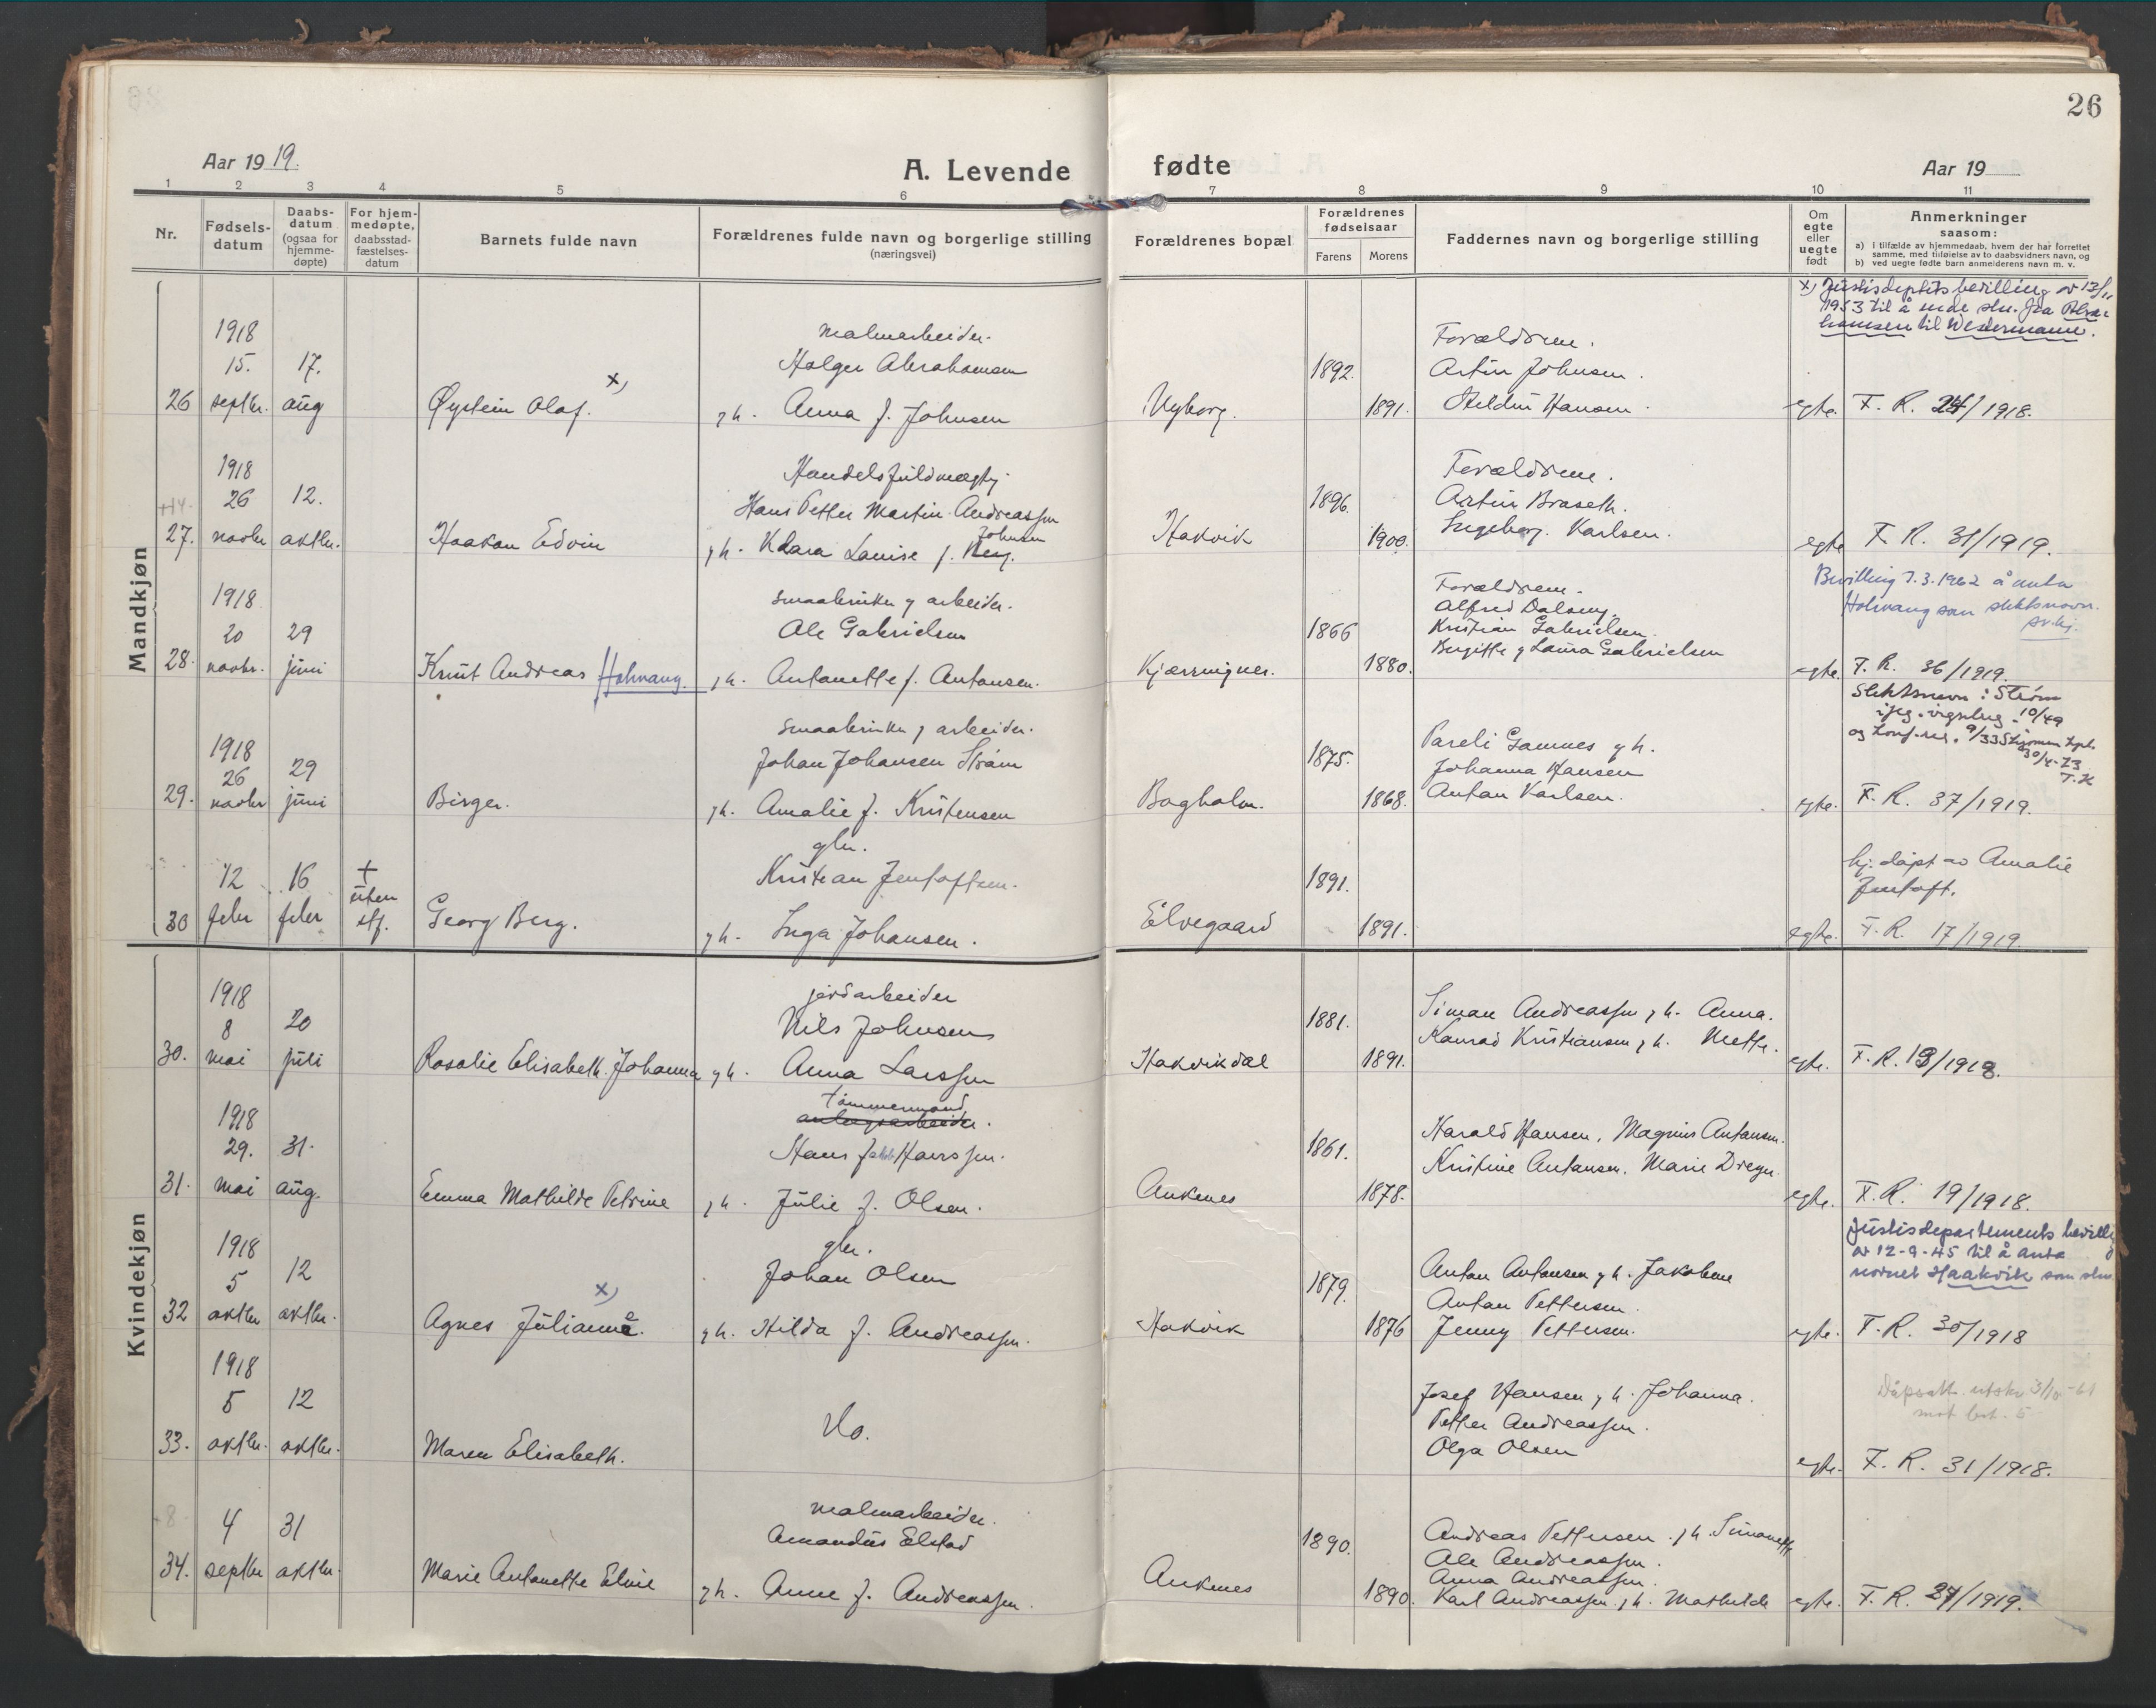 26
Aar 1919.
A. Levende fødte
Aar 19
1 2 3 4 5 6 7 8 9 10 11
Nr.
Fødsels-
datum
Daabs-
datum
(ogsaa for
hjemme-
døpte)
For hjem-
medøpte,
daabsstad-
fæstelses-
datum
Barnets fulde navn
Forældrenes fulde navn og borgerlige stilling
(næringsvei)
Forældrenes bopæl
Forældrenes
fødselsaar
Farens Morens
Faddernes navn og borgerlige stilling
Om
egte
eller
uegte
født
Anmerkninger
saasom:
a) i tilfælde av hjemmedaab, hvem der har forrettet
samme, med tilføielse av to daabsvidners navn, og
b) ved uegte fødte barn anmelderens navn m. v.
Mandkjøn
x) Justisdeptets bevilling av 13/11
1953 til å endre sln. fra Abra-
hamsen til Westermann.
1918 malmarbeider. Forældrene.
15. 17. Holger Abrahamsen 1892. Artur Johnsen.
26 septbr. aug Øystein Olaf. x) g h. Anna f. Johnsen Nyborg. 1891. Heldin Hansen. egte. F. R. 24/1918.
1918 Handelsfuldmægtig Forældrene.
26 12. Hans Petter Martin Andreassen 1896. Artur Braseth.
Johnsen
27. novbr oktbr. Haakon Edvin g h. Klara Louise f. Hakvik 1900. Ingeborg Karlsen. egte F. R. 31/1919.
Bevilling 7.3.1962 å anta
Holmvang som slektsnavn.
1918 smaabruker g arbeider. Forældrene.
Alfred Dalseng.
20 29 Ole Gabrielsen 1866 Kristian Gabrielsen.
28. novbr. juni Knut Andreas Holmvang. g h. Antonette f. Antonsen. Kjærringnes. 1880. Birgitte g Laura Gabrielsen egte. F. R. 36/1919.
Slektsnavn: Strøm
10/49
og konf.
smaabruker g arbeider.
1918 Pareli Gamnes g h.
26 29 Johan Johansen Strøm 1875. Johanna Hansen
29. novbr juni Birger. g h. Amalie f. Kristensen Bogholm. 1868. Anton Karlsen. egte. F. R. 37/1919.
gbr.
12 16 + Kristian Jentoftsen. 1891. hj. døpt av Amalie
uten Jentoft.
30 febr febr stf. Georg Berg. g h. Inga Johansen. Elvegaard 1891. egte. F. R. 17/1919.
Kvindekjøn
1918 jordarbeider
8 20 Nils Johnsen 1881. Simon Andreassen g h. Anna.
Konrad Kristiansen g h. Mette.
30. mai juli Rosalie Elisabeth Johanna g h. Anna Larssen Hakvikdal 1891. egte. F. R. 13/1918.
1918 tømmermand
anlegsarbeider.
29. 31. Hans Jakob Hanssen. 1861. Harald Hansen, Magnus Antonsen.
Kristine Antonsen, Marie Dreyer.
31. mai aug. Emma Mathilde Petrine g h. Julie f. Olsen. Ankenes 1878. egte. F. R. 19/1918.
Justisdepartements bevilling
av 12-9-45 til å anta
navnet Haakvik som sln.
1918 gbr.
5 12 Johan Olsen 1879. Anton Antonsen g h. Jakobine
Anton Pettersen.
32 oktbr oktbr. Agnes Julianne. x) g h. Hilda f. Andreassen. Hakvik 1876 Jenny Pettersen. egte. F. R. 30/1918
1918
5 12 Do. Josef Hansen g h. Johanna. Dåpsatt. utskr 3/10-61
Petter Andreassen.
33. oktbr. oktbr. Maren Elisabeth. Olga Olsen egte. F. R. 31/1918.
malmarbeider.
4 31 Amandus Elstad 1890. Andreas Pettersen g h. Simonette
Ole Andreassen.
Anna Andreassen.
34. septbr oktbr. Marie Antonette Elvie g h. Anne f. Andreassen. Ankenes 1890. Karl Andreassen g h. Mathilde egte. F. R. 27/1919.